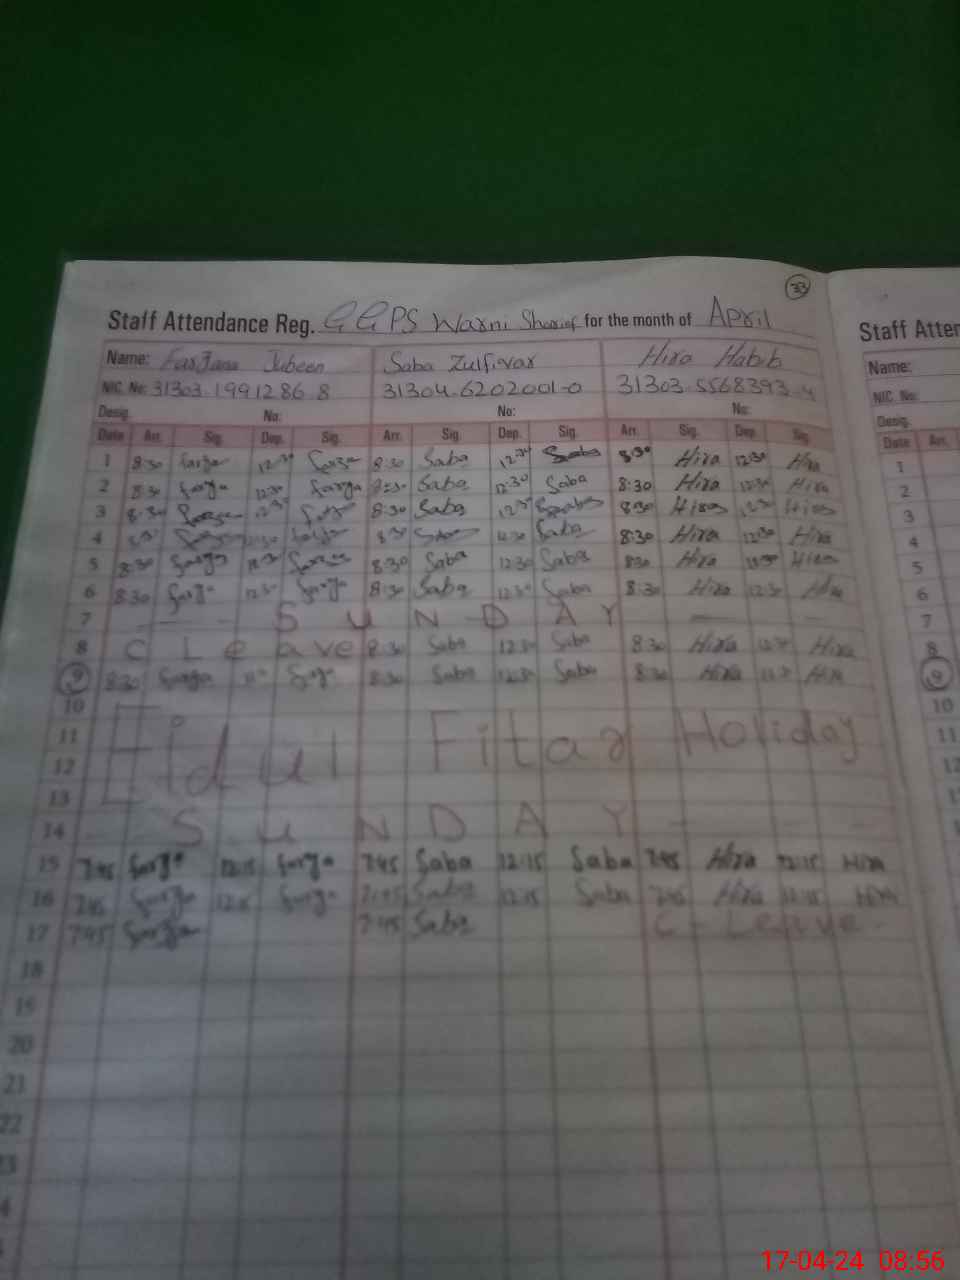 33
Staff Attendance Reg. GGPS Warni Sharief for the month of April
Staff Atten
Name: Farzana Jubeen Saba Zulfiqar Hira Habib
Name:
NIC. No: 31303.1991286.8 31304.6202001-0 31303.5568393-4
NIC. No:
Desig. No: No: No:
Desig
Date Arr. Sig. Dep. Sig. Arr. Sig. Dep. Sig. Arr. Sig. Dep. Sig.
Date Arr.
1 8:30 Farza 12:30 Farza 8:30 Saba 12:30 Saba 8:30 Hira 12:30 Hira
2 8:30 Farza 12:30 Farza 8:30 Saba 12:30 Saba 8:30 Hira 12:30 Hira
3 8:30 Farza 12:30 Farza 8:30 Saba 12:30 Saba 8:30 Hira 12:30 Hira
4 8:30 Farza 12:30 Farza 8:30 Saba 12:30 Saba 8:30 Hira 12:30 Hira
5 8:30 Farza 12:30 Farza 8:30 Saba 12:30 Saba 8:30 Hira 12:30 Hira
6 8:30 Farza 12:30 Farza 8:30 Saba 12:30 Saba 8:30 Hira 12:30 Hira
7 - - - S U N D A Y - -
8 C Leave 8:30 Saba 12:30 Saba 8:30 Hira 12:30 Hira
9 8:30 Farza Farza 8:30 Saba 12:30 Saba 8:30 Hira 12:30 Hira
10
11 Eidul Fitar Holiday
12
13
14 - S U N D A Y - - -
15 7:45 Farza 12:15 Farza 7:45 Saba 12:15 Saba 7:45 Hira 12:15 Hira
16 7:45 Farza 12:15 Farza 7:45 Saba 12:15 Saba 7:45 Hira 12:15 Hira
17 7:45 Farza 7:45 Saba C - Leave -
18
19
20
21
22
23
4
1
2
3
4
5
6
7
8
9
10
11
17-04-24 08:56